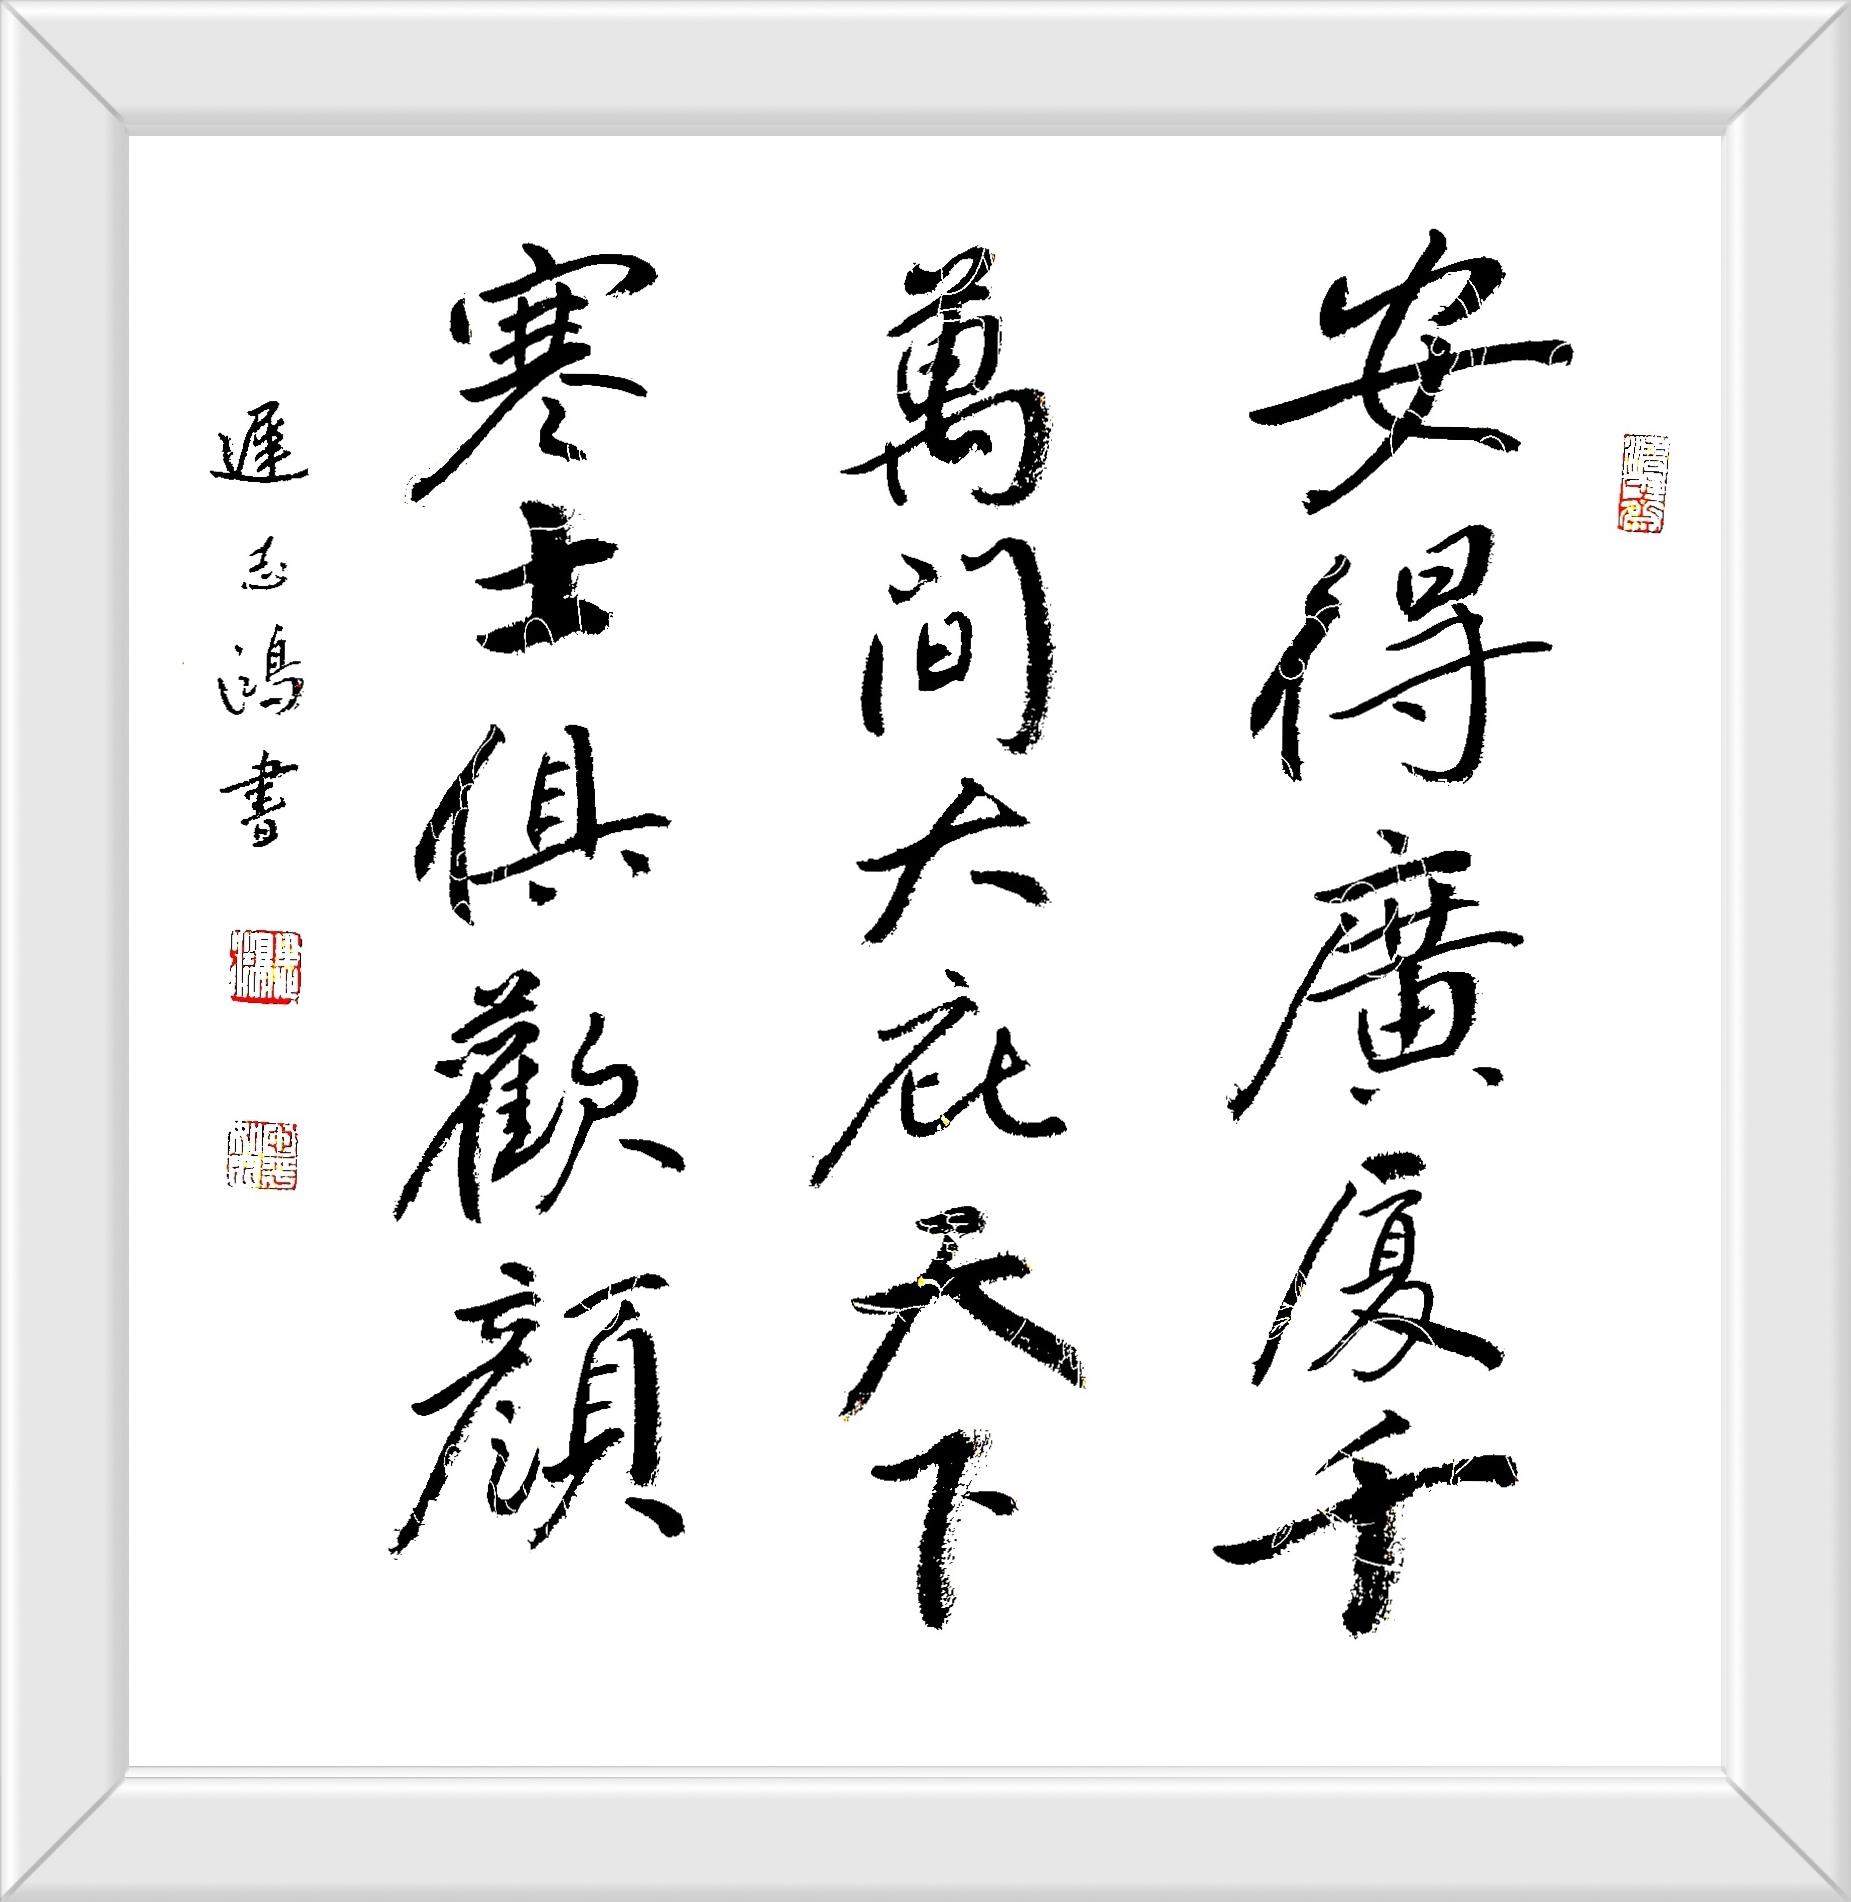 安得廣厦千
萬间大庇天下
寒士俱歡顔
遲志鴻書